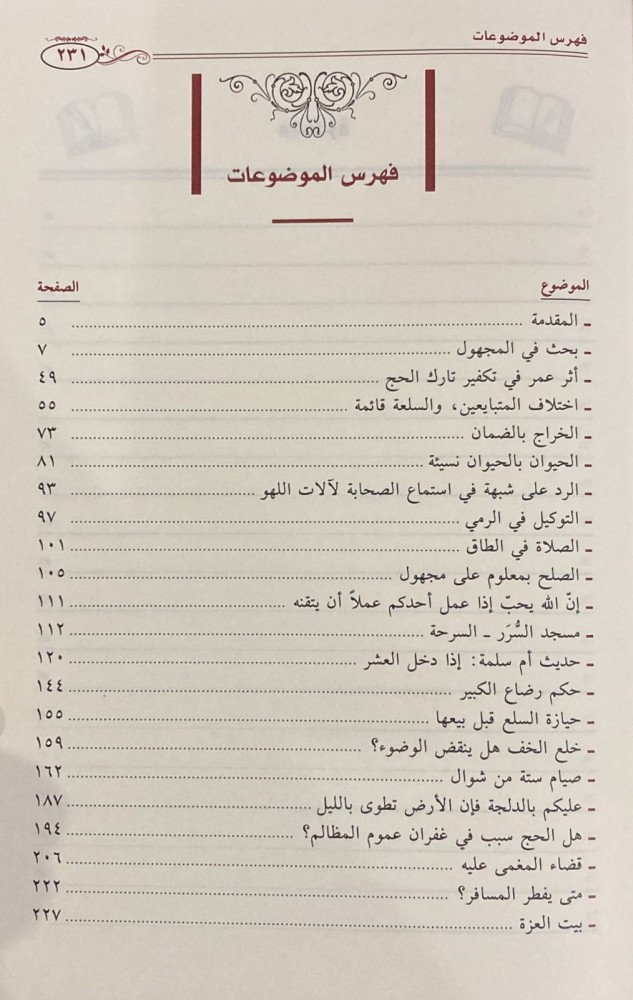 فهرس الموضوعات
٢٣١
فهرس الموضوعات
الموضوع الصفحة
ـ المقدمة ........ ٥
ـ بحث في المجهول ........ ٧
ـ أثر عمر في تكفير تارك الحج ........ ٤٩
ـ اختلاف المتبايعين، والسلعة قائمة ........ ٥٥
ـ الخراج بالضمان ........ ٧٣
ـ الحيوان بالحيوان نسيئة ........ ٨١
ـ الرد على شبهة في استماع الصحابة لآلات اللهو ........ ٩٣
ـ التوكيل في الرمي ........ ٩٧
ـ الصلاة في الطاق ........ ١٠١
ـ الصلح بمعلوم على مجهول ........ ١٠٥
ـ إنّ الله يحبّ إذا عمل أحدكم عملاً أن يتقنه ........ ١١١
ـ مسجد السُّرَر ـ السرحة ........ ١١٢
ـ حديث أم سلمة: إذا دخل العشر ........ ١٢٠
ـ حكم رضاع الكبير ........ ١٤٤
ـ حيازة السلع قبل بيعها ........ ١٥٥
ـ خلع الخف هل ينقض الوضوء؟ ........ ١٥٩
ـ صيام ستة من شوال ........ ١٦٢
ـ عليكم بالدلجة فإن الأرض تطوى بالليل ........ ١٨٧
ـ هل الحج سبب في غفران عموم المظالم؟ ........ ١٩٤
ـ قضاء المغمى عليه ........ ٢٠٦
ـ متى يفطر المسافر؟ ........ ٢٢٢
ـ بيت العزة ........ ٢٢٧